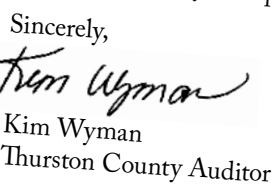 Sincerely,
Kim Wyman
Kim Wyman
Thurston County Auditor